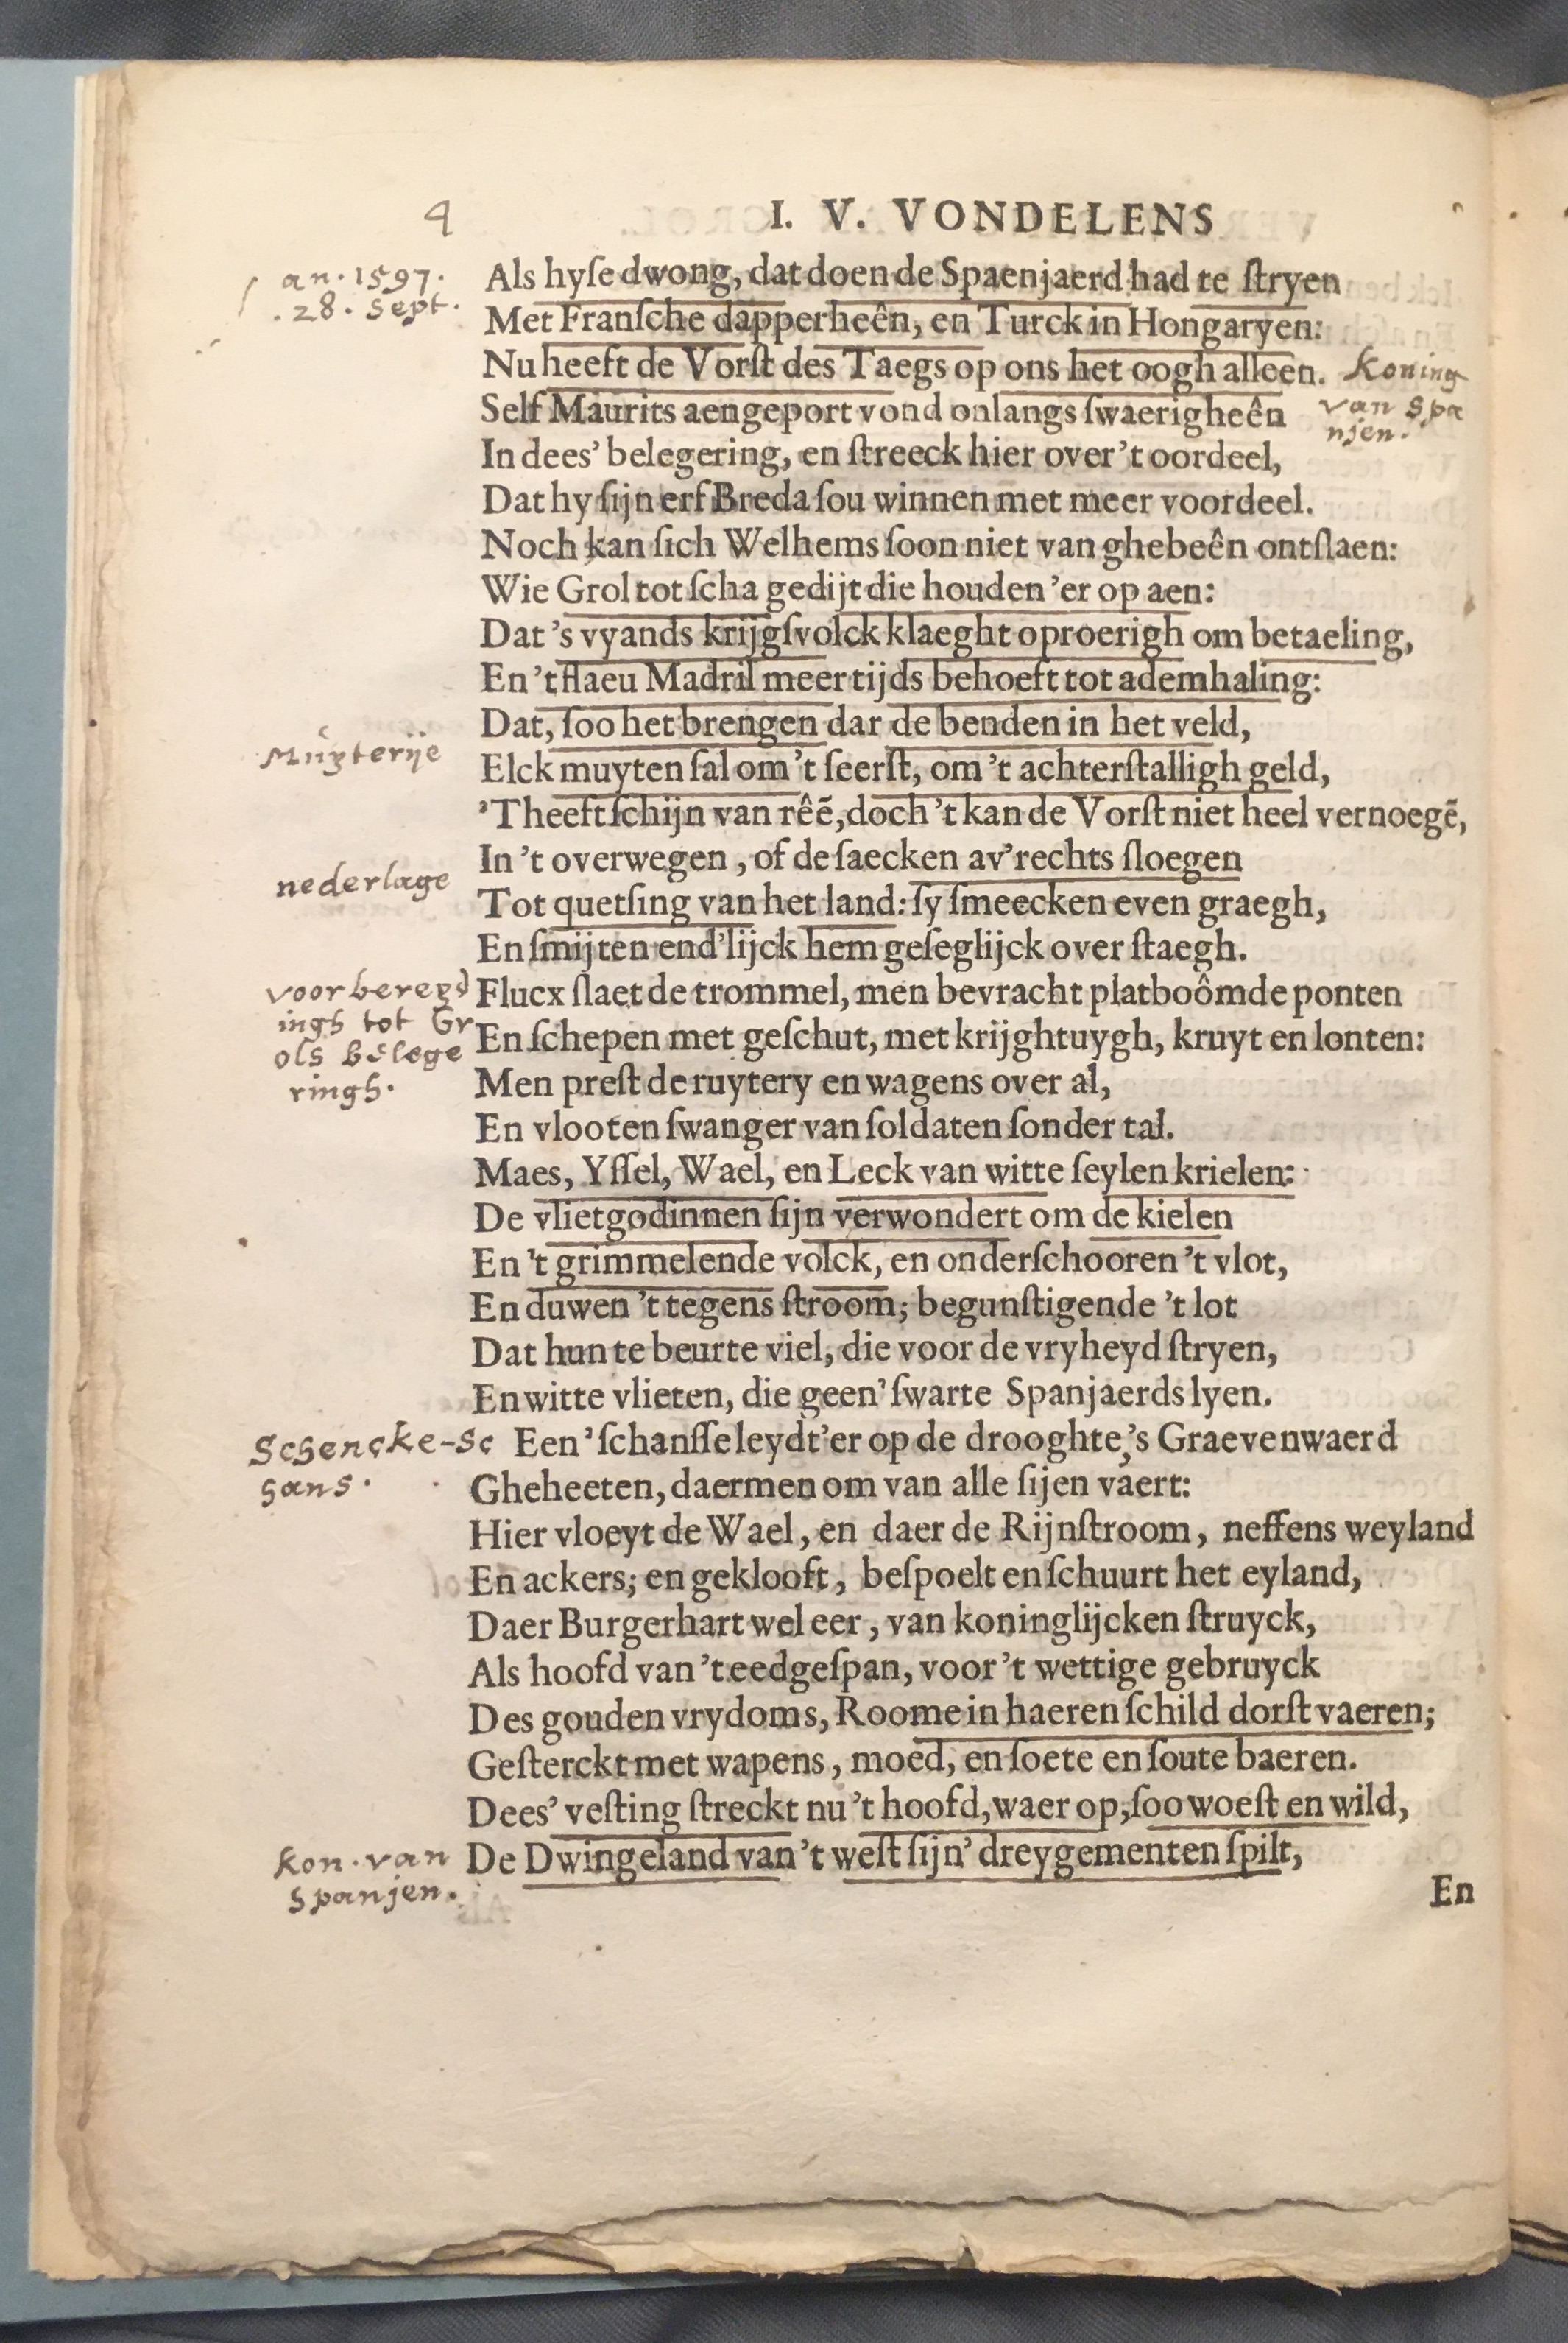 4
I. V. VONDELENS
an. 1597.
28. Sept.
Als hyſe dwong, dat doen de Spaenjaerd had te ſtryen
Met Franſche dapperheên, en Turck in Hongaryen:
Nu heeft de Vorſt des Taegs op ons het oogh alleen.
Koning
van Spa
njen.
Self Maurits aengeport vond onlangs ſwaerigheên
In dees' belegering, en ſtreeck hier over 't oordeel,
Dat hy ſijn erf Breda ſou winnen met meer voordeel.
Noch kan ſich Welhems ſoon niet van ghebeên ontſlaen:
Wie Grol tot ſcha gedijt die houden 'er op aen:
Dat 's vyands krijgſvolck klaeght oproerigh om betaeling,
En 't flaeu Madril meer tijds behoeft tot ademhaling:
Dat, ſoo het brengen dar de benden in het veld,
Muyterije
Elck muyten ſal om 't ſeerſt, om 't achterſtalligh geld,
'Theeft ſchijn van rêẽ, doch 't kan de Vorſt niet heel vernoegẽ,
In 't overwegen, of de ſaecken av'rechts ſloegen
nederlage
Tot quetſing van het land: ſy ſmeecken even graegh,
En ſmijten end'lijck hem geſeglijck over ſtaegh.
voorbereyd
ingh tot Gr
ols belege
ringh.
Flucx ſlaet de trommel, men bevracht platboômde ponten
En ſchepen met geſchut, met krijghtuygh, kruyt en lonten:
Men preſt de ruytery en wagens over al,
En vlooten ſwanger van ſoldaten ſonder tal.
Maes, Yſſel, Wael, en Leck van witte ſeylen krielen:
De vlietgodinnen ſijn verwondert om de kielen
En 't grimmelende volck, en onderſchooren 't vlot,
En duwen 't tegens ſtroom; begunſtigende 't lot
Dat hun te beurte viel, die voor de vryheyd ſtryen,
En witte vlieten, die geen' ſwarte Spanjaerds lyen.
Schencke-Sc
hans.
Een' ſchanſſe leydt'er op de drooghte, 's Graevenwaerd
Gheheeten, daermen om van alle ſijen vaert:
Hier vloeyt de Wael, en daer de Rijnſtroom, neffens weyland
En ackers; en geklooft, beſpoelt en ſchuurt het eyland,
Daer Burgerhart wel eer, van koninglijcken ſtruyck,
Als hoofd van 't eedgeſpan, voor 't wettige gebruyck
Des gouden vrydoms, Roome in haeren ſchild dorſt vaeren;
Geſterckt met wapens, moed, en ſoete en ſoute baeren.
Dees' veſting ſtreckt nu 't hoofd, waer op, ſoo woeſt en wild,
kon. van
Spanjen.
De Dwingeland van 't weſt ſijn' dreygementen ſpilt,
En